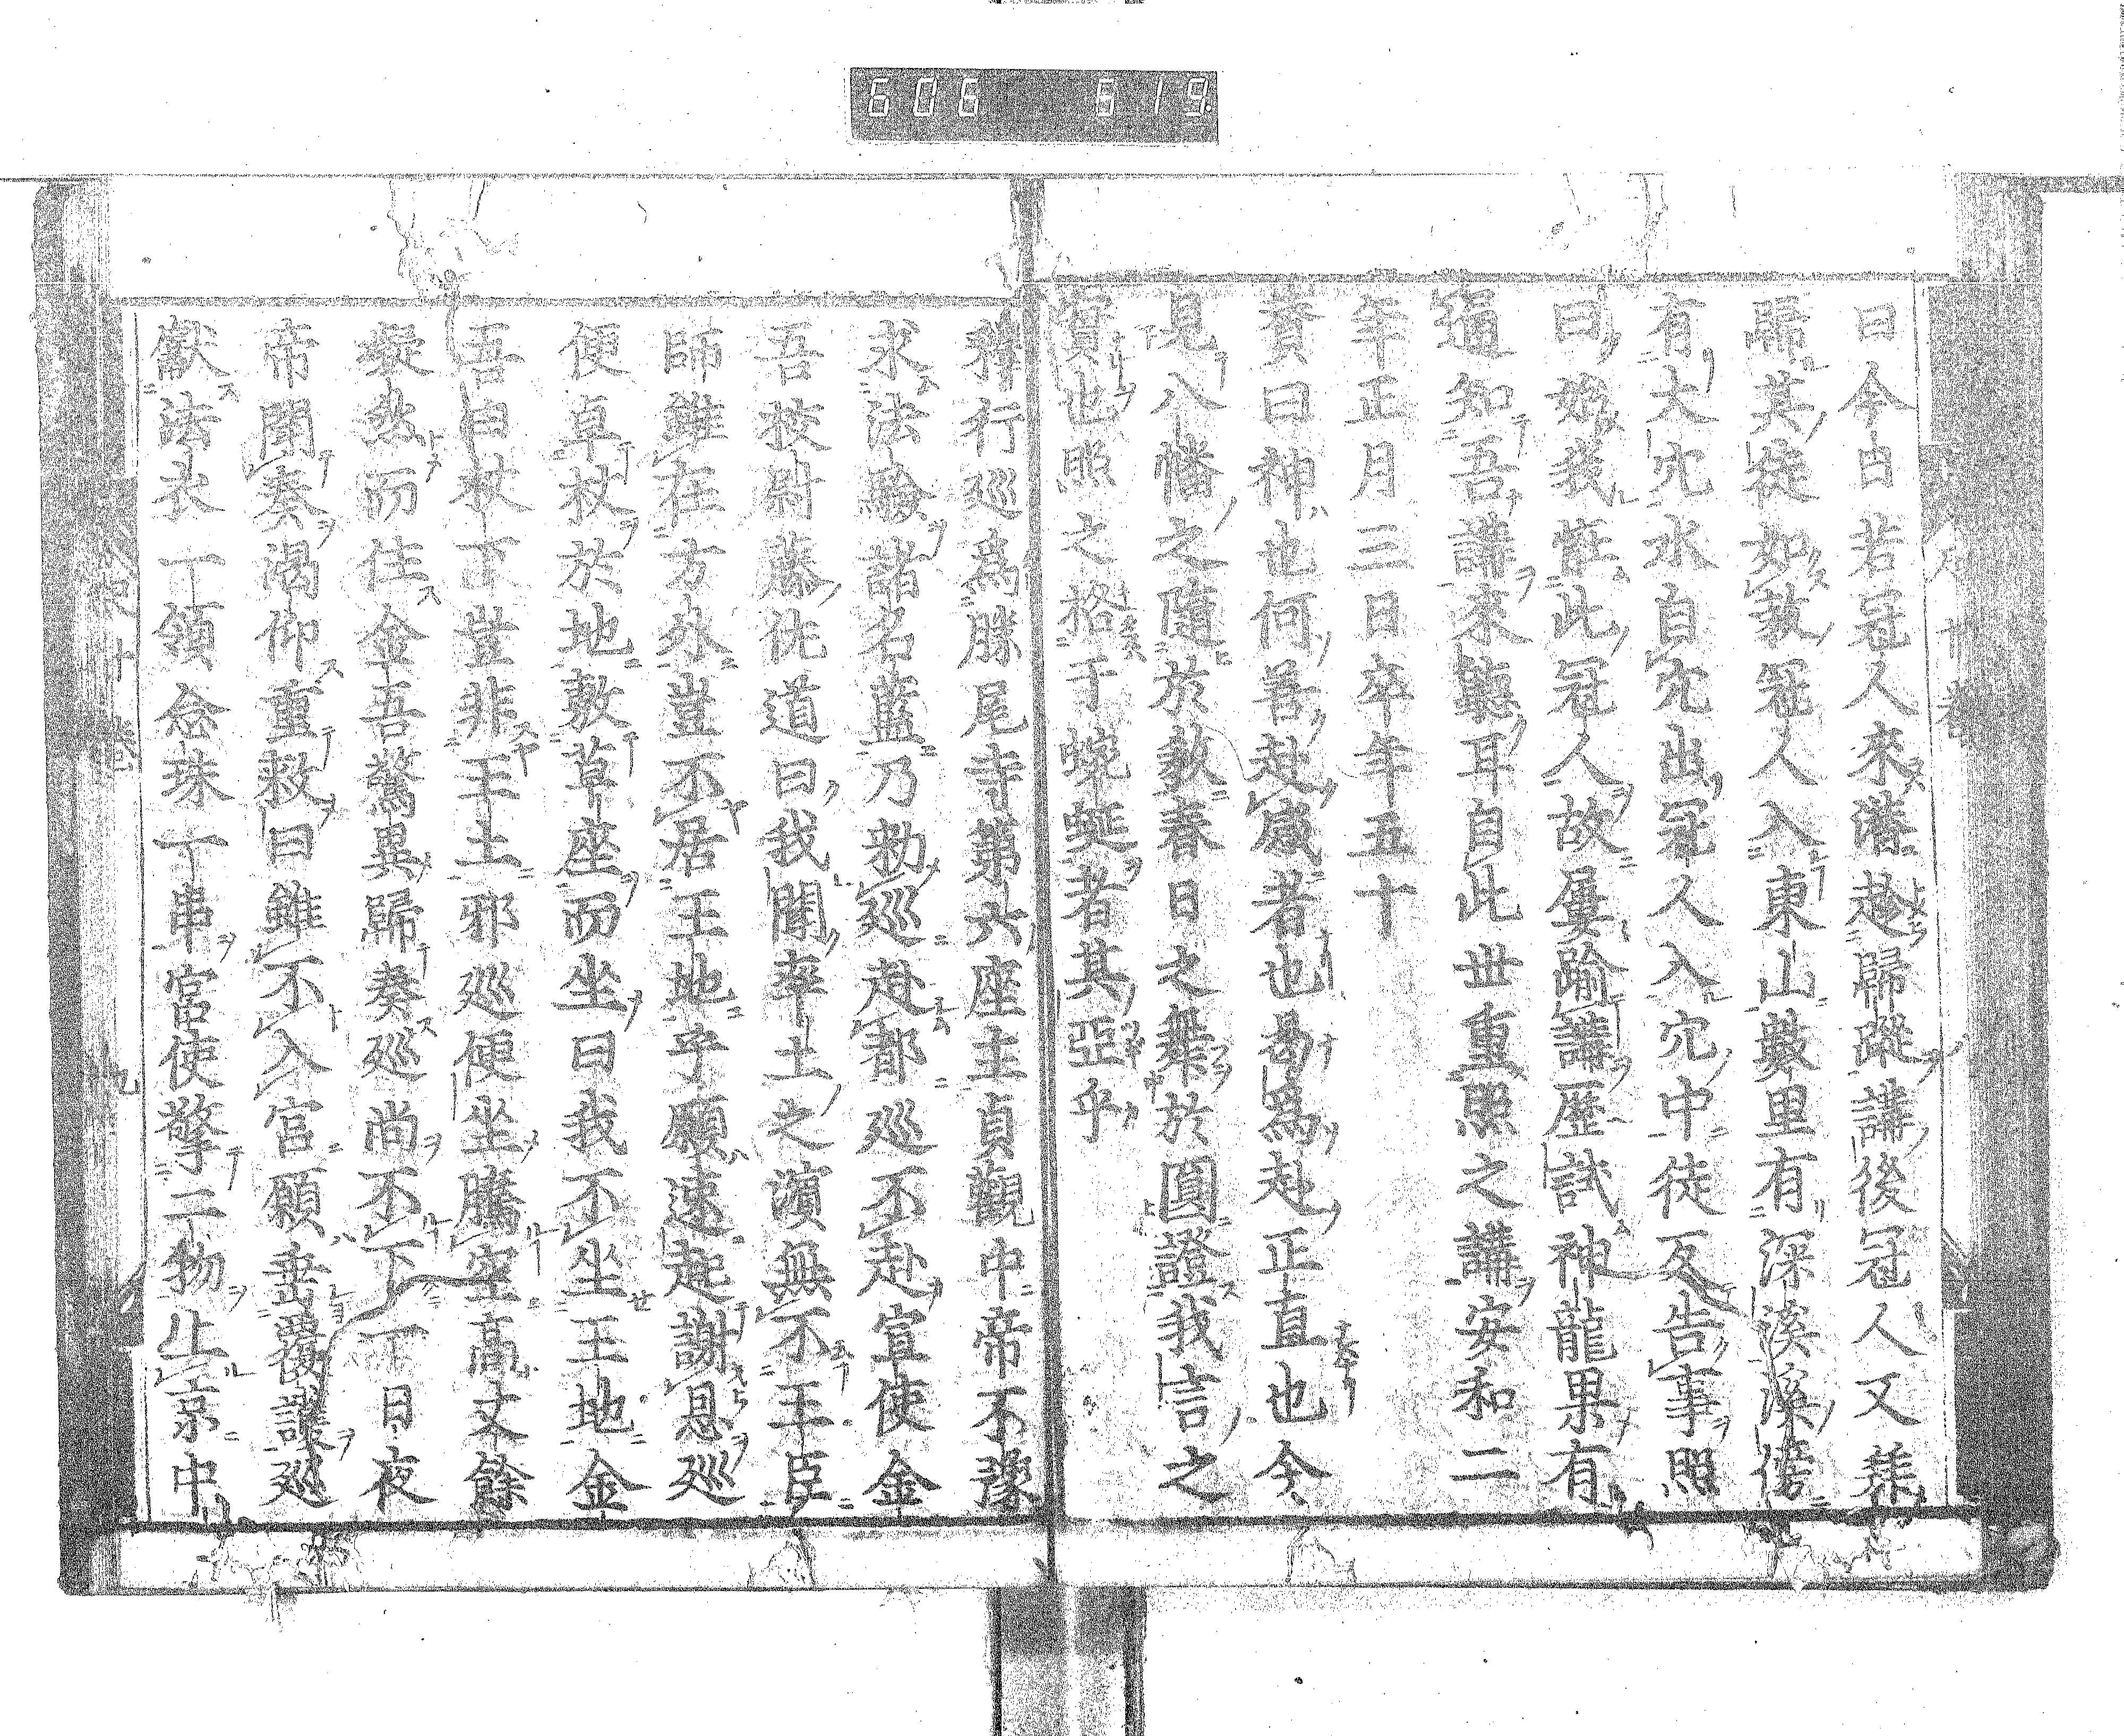 606 619
曰今白若冠人來潛趁歸蹤講後冠人又葬
歸其徒如教冠人入東山數里有深溪溪傍
有大穴水自穴出冠人入穴中徒反告事照
曰始我恠此冠人故屢踰講歷試神龍果有
通知吾講來聽耳自此世重照之講安和二
年正月三日卒年五十
贊曰神也何善赴感者也曷爲赴正直也今
見八幡之隨於教春日之舞於圓證我言之
實也照之格于蜿蜒者其亞乎
釋行巡爲勝尾寺第六座主貞觀中帝不豫
求法驗諸名藍乃勅巡赴都巡不赴宣使金
吾挍尉藤侁道曰我聞率土之濱無不王臣
師雖在方外豈不居王地乎願速起謝恩巡
便卓杖於地敷草座而坐曰我不坐王地金
吾白杖下豈非王土邪巡便坐騰空高丈餘
凝然而住金吾驚異歸奏巡尚不下一日夜
帝聞奏渴仰重敕曰雖不入宮願垂覆護巡
獻法衣一領念珠一串宮使擎二物止京中
九